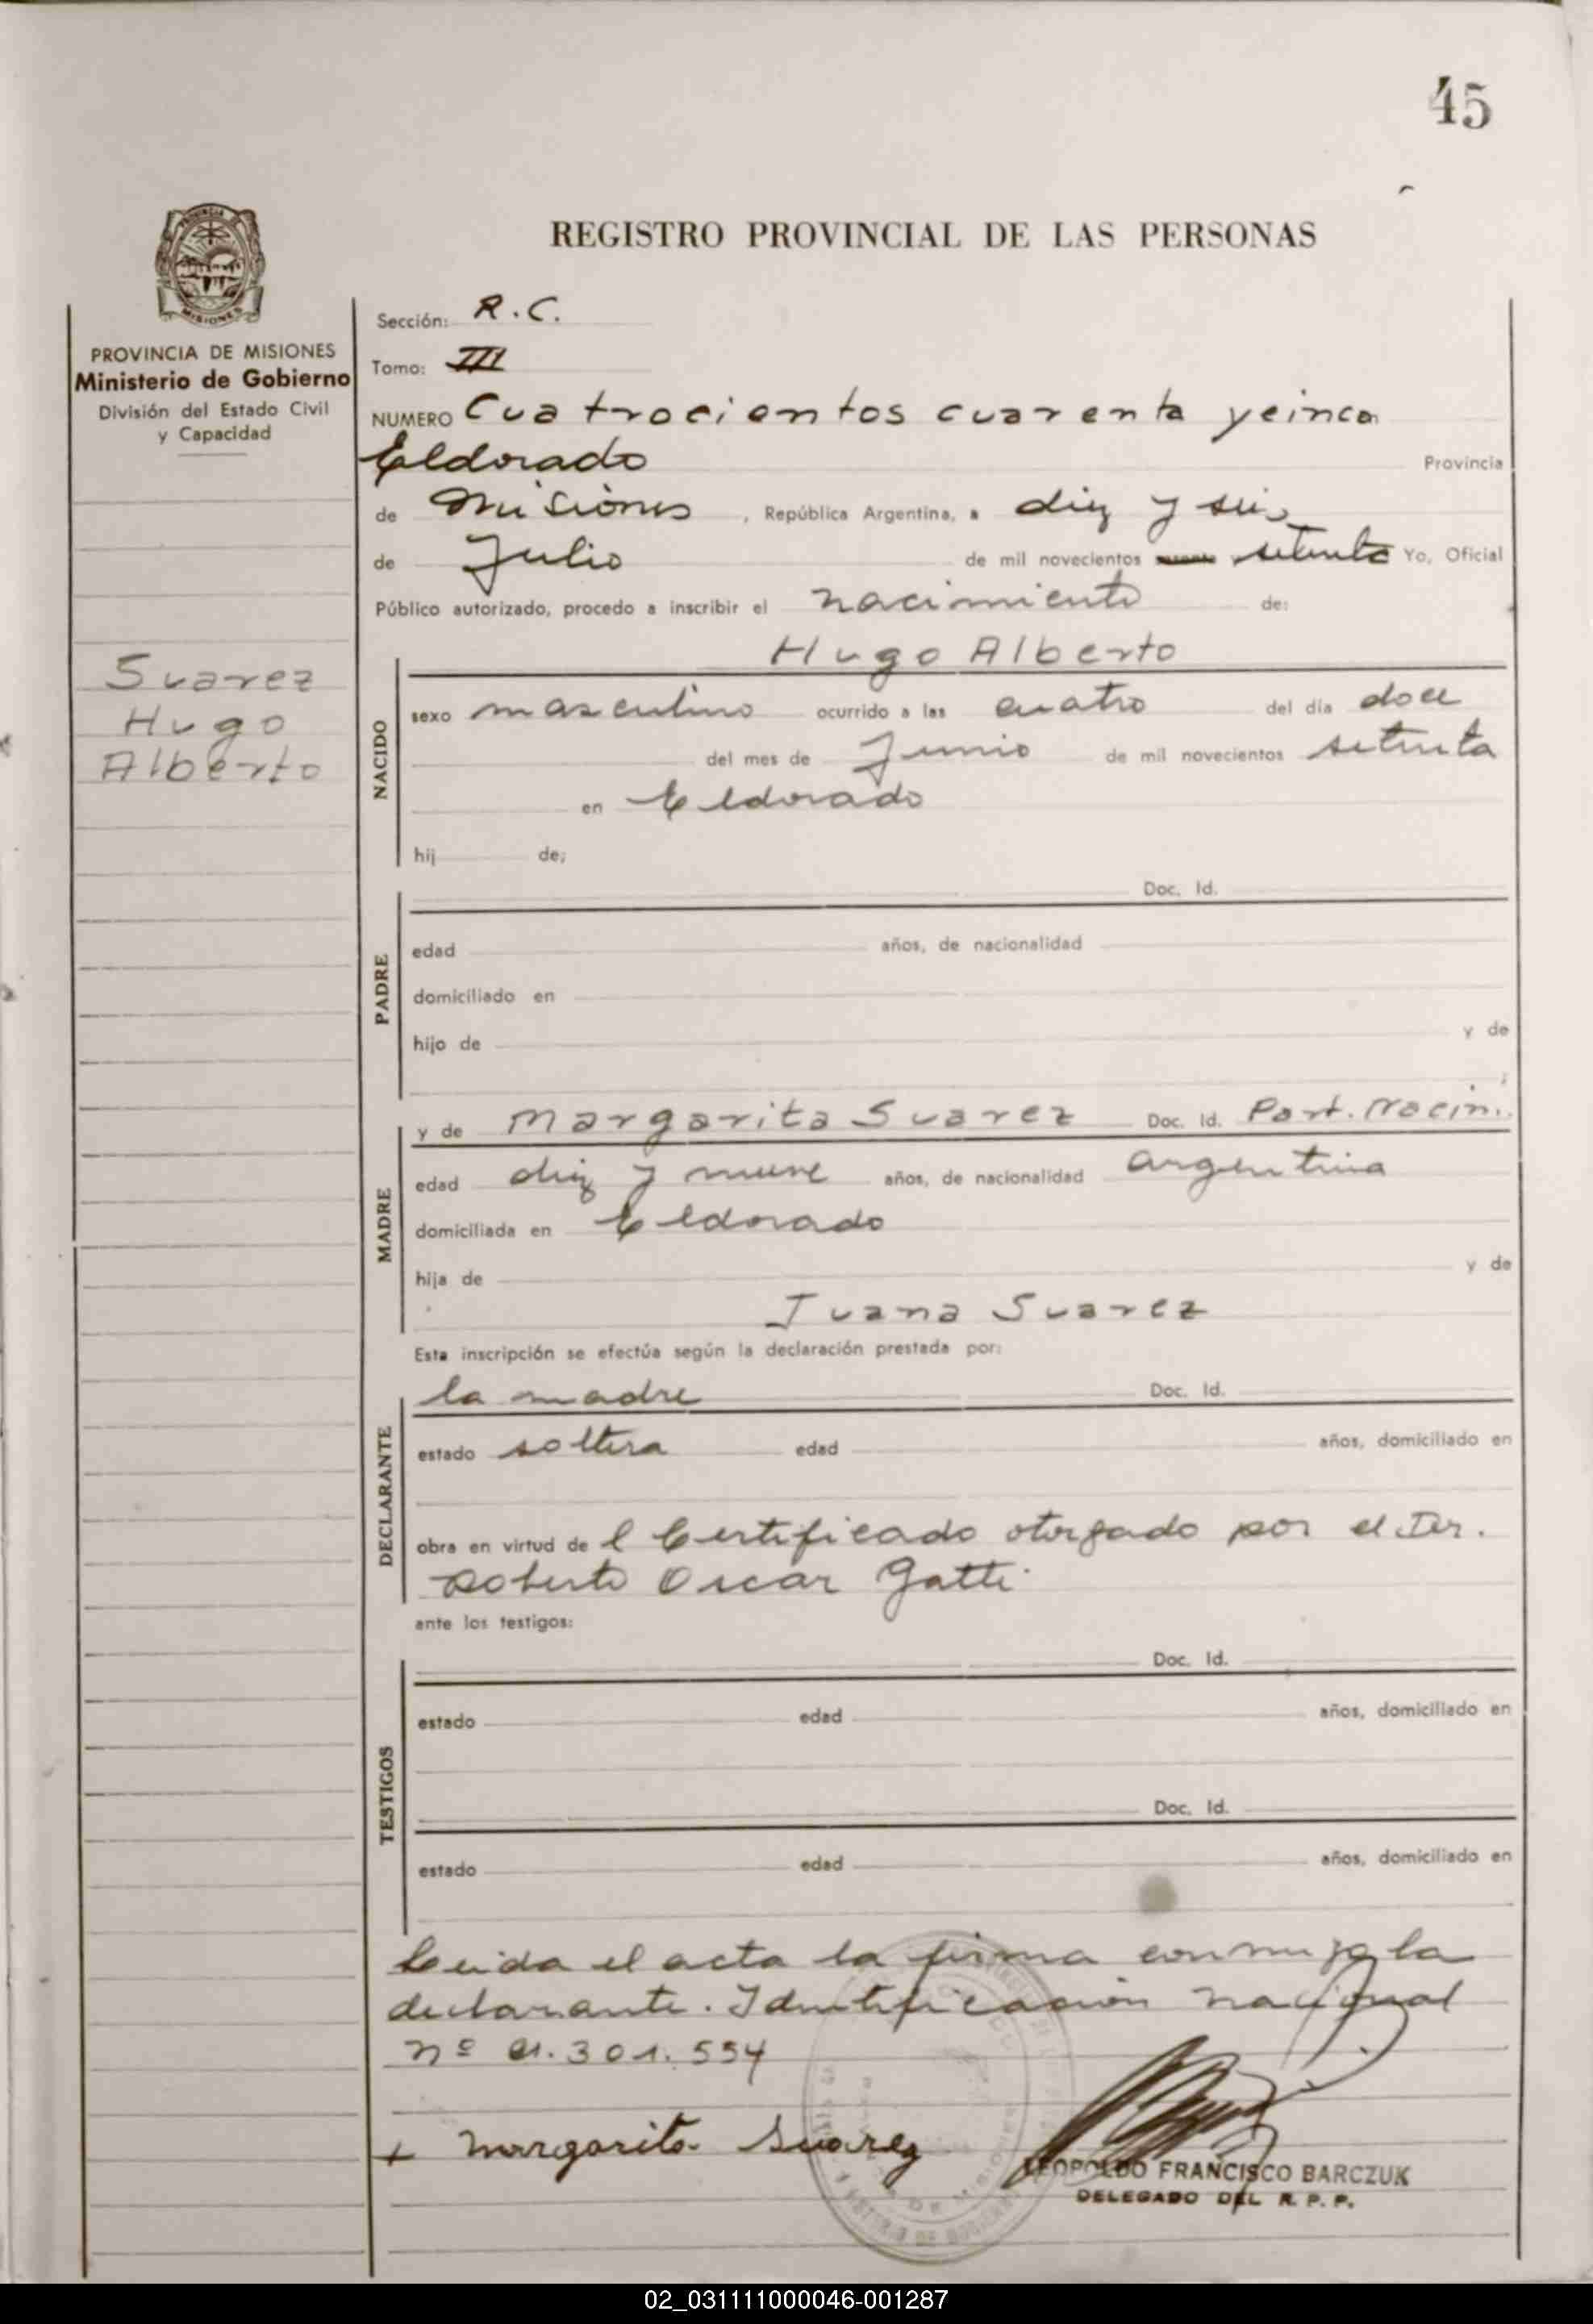 45
REGISTRO PROVINCIAL DE LAS PERSONAS
MISIONES
PROVINCIA DE MISIONES
Ministerio de Gobierno
División del Estado Civil
y Capacidad
Suarez
Hugo
Alberto
Sección: R.C.
Tomo: III
NUMERO Cuatrocientos cuarenta y cinco
Eldorado Provincia
de Misiones, República Argentina, a diez y seis
de Julio de mil novecientos setenta Yo, Oficial
Público autorizado, procedo a inscribir el nacimiento de:
Hugo Alberto
NACIDO
sexo masculino ocurrido a las cuatro del día doce
del mes de Junio de mil novecientos setenta
en Eldorado
hij de;
PADRE
Doc. Id.
edad años, de nacionalidad
domiciliado en
hijo de y de
;
MADRE
y de Margarita Suarez Doc. Id. Part. Nacim.
edad diez y nueve años, de nacionalidad argentina
domiciliada en Eldorado
hija de y de
Juana Suarez
Esta inscripción se efectúa según la declaración prestada por:
DECLARANTE
la madre Doc. Id.
estado soltera edad años, domiciliado en
obra en virtud de l Certificado otorgado por el Dr.
Roberto Oscar Gatti.
ante los testigos:
TESTIGOS
Doc. Id.
estado edad años, domiciliado en
Doc. Id.
estado edad años, domiciliado en
Leida el acta la firma conmigo la
declarante. Identificación nacional
nº 21.301.554
+ Margarita Suarez
LEOPOLDO FRANCISCO BARCZUK
DELEGADO DEL R. P. P.
02_031111000046-001287